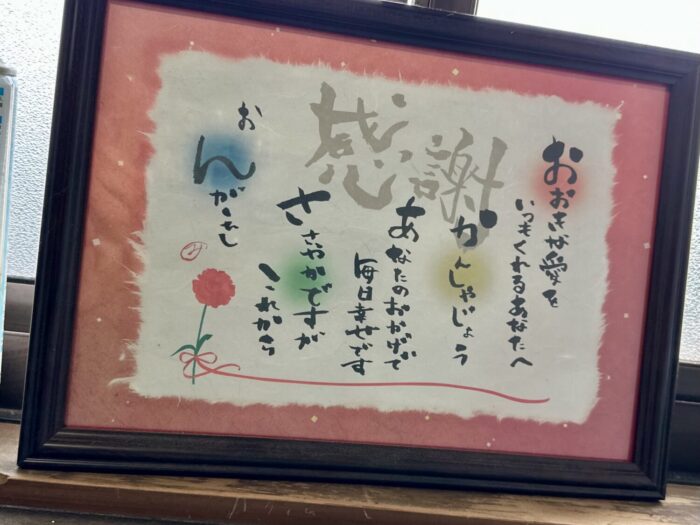 感謝
おおきな愛を
いつもくれるあなたへ
かんしゃじょう
あなたのおかげで
毎日幸せです
ささやかですが
これから
おんがえし